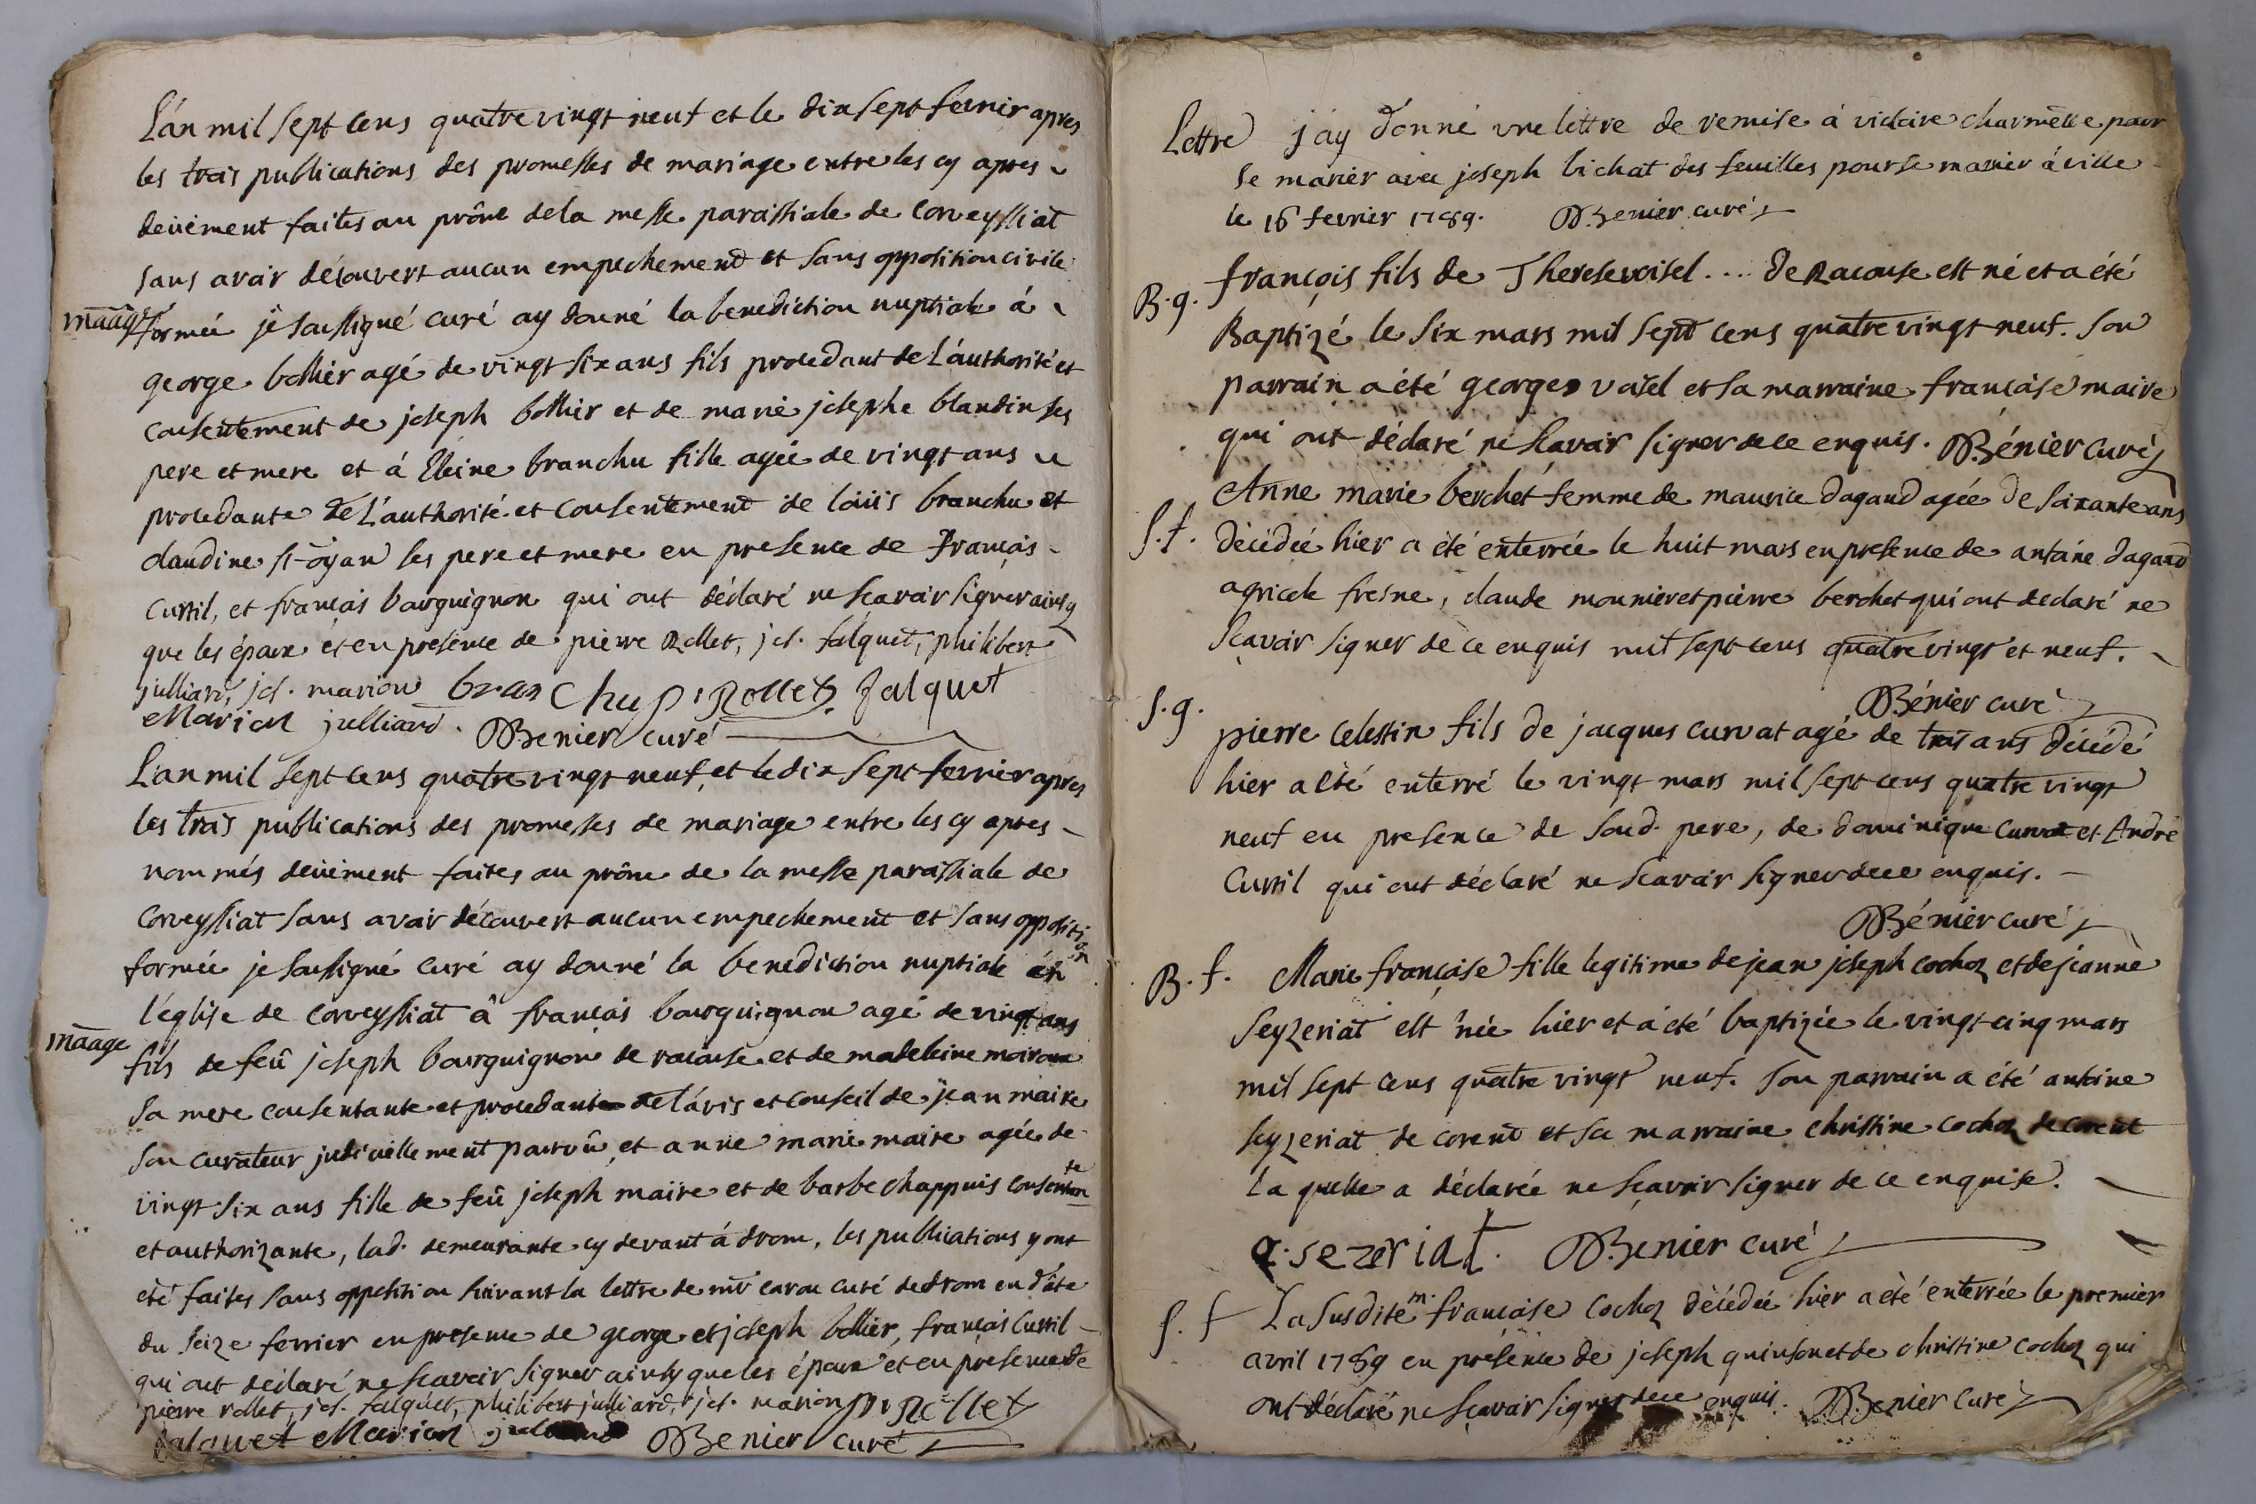 L'an mil sept cens quatre vingt neuf et le dix sept fevrier apres
les trois publications des promesses de mariage entre les cy apres
deüement faites au prône de la messe paroissiale de Corveyssiat
sans avoir découvert aucun empechement et sans opposition civile
mãage formée je soussigné curé ay donné la benediction nuptiale á
george bollier agé de vingt six ans fils procedant de L'authorité et
consentement de joseph bollier et de marie josephe blandin ses
pere et mere et á branchu fille agée de vingt ans
procedante de L'authorité et consentement de loüis branchu et
claudine st oyan ses pere et mere en presence de françois
Curtil, et françois bourguignon qui ont déclaré ne scavoir signer ainsy
que les époux et en presence de pierre Rollet, jos. falquet, philibert
julliard, jos. marion branchu p. Rollet falquet
Marion julliard. Benier curé
L'an mil sept cens quatre vingt neuf, et le dix sept fevrier apres
les trois publications des promesses de mariage entre les cy apres
nommés deüement faites au prône de la messe paroissiale de
Corveyssiat sans avoir découvert aucun empechement et sans opposition
formée je soussigné curé ay donné la benediction nuptiale en
l'église de Corveyssiat â françois bourguignon agé de vingt ans
mãage fils de feû joseph bourguignon de racouse et de madeleine
sa mere consentante et procedant de l'avis et conseil de jean maire
son curateur judiciellement pourvû, et anne marie maire agée de
vingt six ans fille de feû joseph maire et de barbe chappuis consentante
et authorizante, lad. demeurante cy devant á drom, les publications y ont
eté faites sans opposition suivant la lettre de mr caron curé de drom en d'ate
du seize fevrier en presence de george et joseph bollier, françois Curtil
qui ont déclaré ne scavoir signer ainsy que les époux et en presence de
pierre rollet, jos. falquet, philibert julliard, jos. marion p. Rollet
falquet Marion Benier curé
Lettre j'ay donné une lettre de remise á victoire charmette pour
se marier avec joseph bichat des feuilles pour se marier á ville
le 16 fevrier 1789. Benier curé
B. g. françois fils de Therese voisel .... de Racouse est né et a été
Baptizé le six mars mil sept cens quatre vingt neuf. son
parrain a été george voisel et sa marraine françoise maire
qui ont déclaré ne scavoir signer de ce enquis. Bénier curé
S. f. Anne marie berchet femme de maurice dagand agée de soixante ans
décédée hier a été enterrée le huit mars en presence de antoine dagand
agricole fresne, claude mounier et pierre berchet qui ont declaré ne
sçavoir signer de ce enquis mil sept cens quatre vingt et neuf.
Bénier curé
S. g. pierre Celestin fils de jacques curvat agé de trois ans décédé
hier a été enterré le vingt mars mil sept cens quatre vingt
neuf en presence de soud. pere, de dominique curvat et André
Curtil qui ont déclaré ne scavoir signer de ce enquis.
Bénier curé
B. f. Marie françoise fille legitime de jean joseph cochoz et de jeanne
Seyzeriat est née hier et a été baptizée le vingt cinq mars
mil sept cens quatre vingt neuf. son parrain a été antoine
seyzeriat de corent et sa marraine christine cochoz de corent
la quelle a déclarée ne sçavoir signer de ce enquise.
a. sezeriat. Benier curé
S. f La susdite m. françoise Cochoz décédée hier a été enterrée le premier
avril 1789 en présence de joseph quinson et de christine cochoz qui
ont déclaré ne sçavoir signer de ce enquis. Benier curé